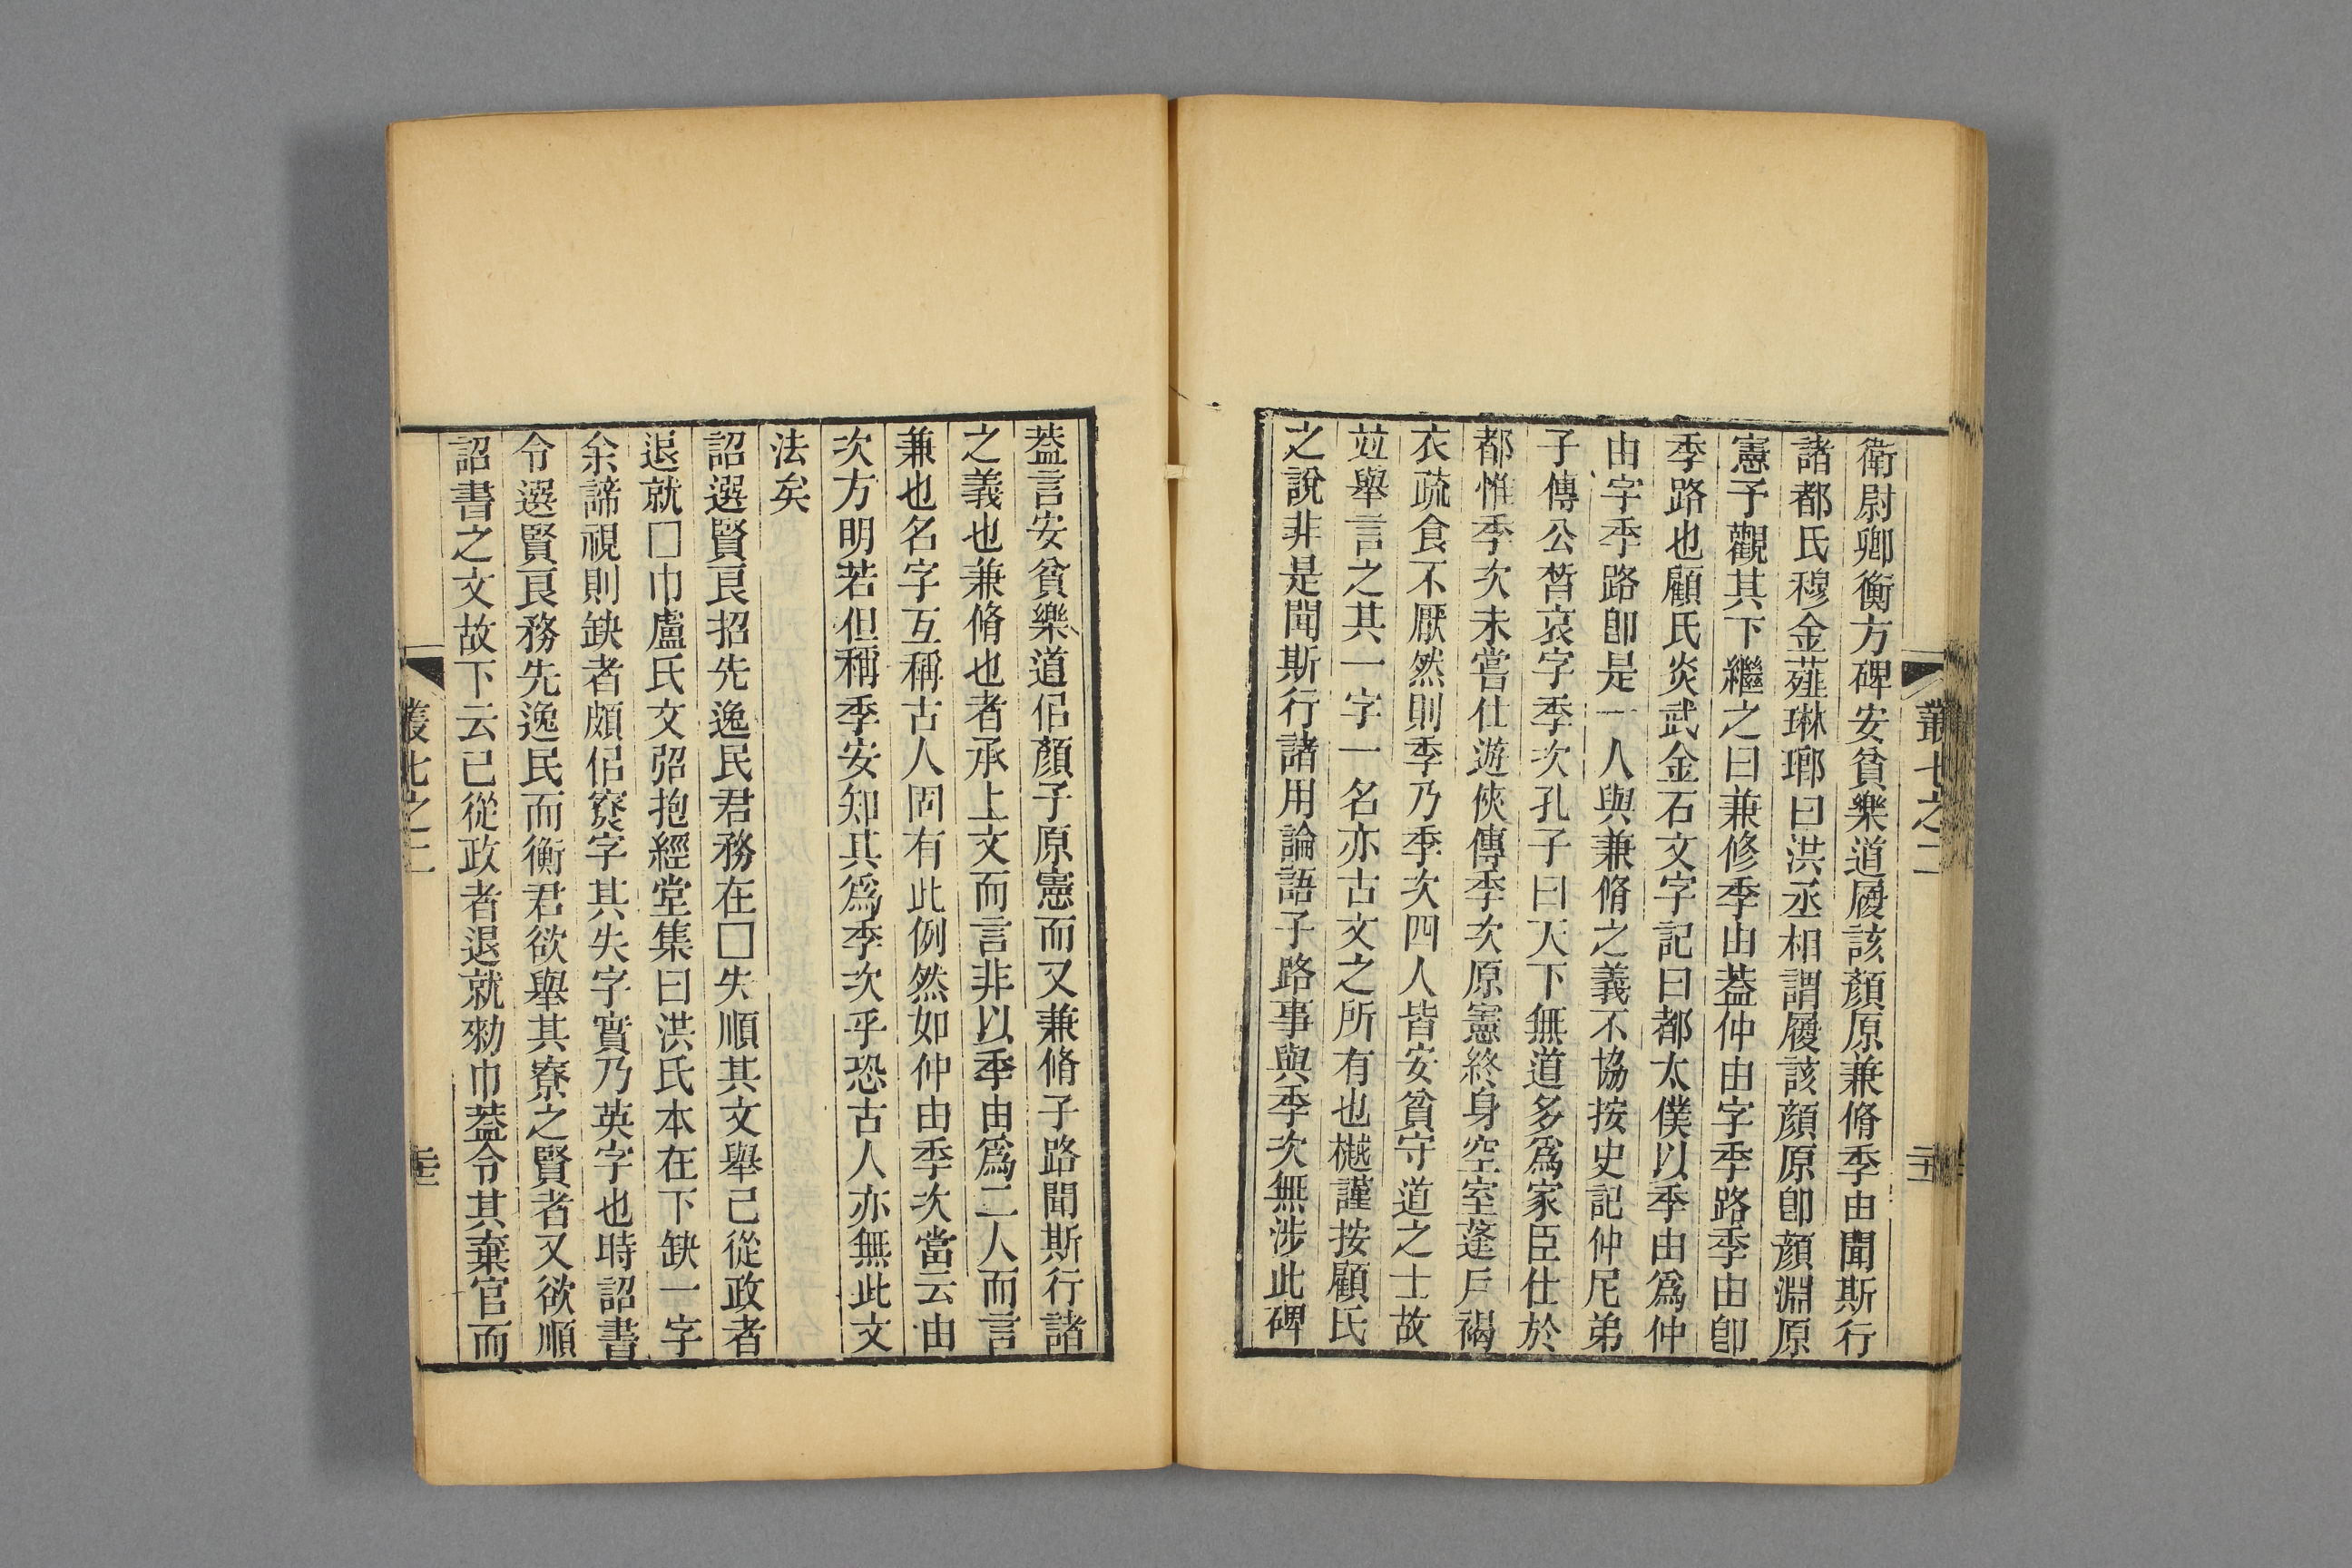 衛尉卿衡方碑安貧樂道履該顏原兼脩季由聞斯行
諸都氏穆金薤琳瑯曰洪丞相謂履該顏原卽顏淵原
憲予觀其下繼之曰兼修季由葢仲由字季路季由卽
季路也顧氏炎武金石文字記曰都太僕以季由爲仲
由字季路卽是一人與兼脩之義不協按史記仲尼弟
子傳公皙哀字季次孔子曰天下無道多爲家臣仕於
都惟季次未嘗仕遊俠傳季次原憲終身空室蓬戶褐
衣疏食不厭然則季乃季次四人皆安貧守道之士故
竝舉言之其一字一名亦古文之所有也樾謹按顧氏
之說非是聞斯行諸用論語子路事與季次無涉此碑
叢七之二
葢言安貧樂道佀顏子原憲而又兼脩子路聞斯行諸
之義也兼脩也者承上文而言非以季由爲二人而言
兼也名字互稱古人固有此例然如仲由季次當云由
次方明若但稱季安知其爲季次乎恐古人亦無此文
法矣
詔選賢良招先逸民君務在□失順其文舉已從政者
退就□巾盧氏文弨抱經堂集曰洪氏本在下缺一字
余諦視則缺者頗佀寮字其失字實乃英字也時詔書
令選賢良務先逸民而衡君欲舉其寮之賢者又欲順
詔書之文故下云已從政者退就勑巾葢令其棄官而
叢七之二